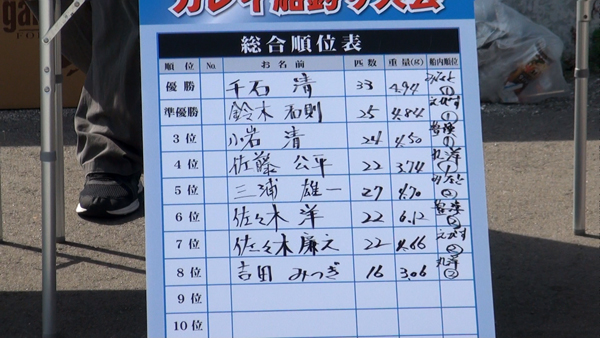 カレイ船釣り大会
総合順位表
順位 No. お名前 匹数 重量(g) 船内順位
優勝 千石 清 33 4.94 ①
準優勝 鈴木 和則 25 4.84 えびす ①
3位 小岩 清 24 4.50 ①
4位 佐藤 公平 22 3.74 丸洋 ①
5位 三浦 雄一 27 4.70 ②
6位 佐々木 洋 22 6.12
7位 佐々木 廉之 22 4.66 えびす ②
8位 吉田 みつぎ 16 3.06 丸洋 ②
9位
10位